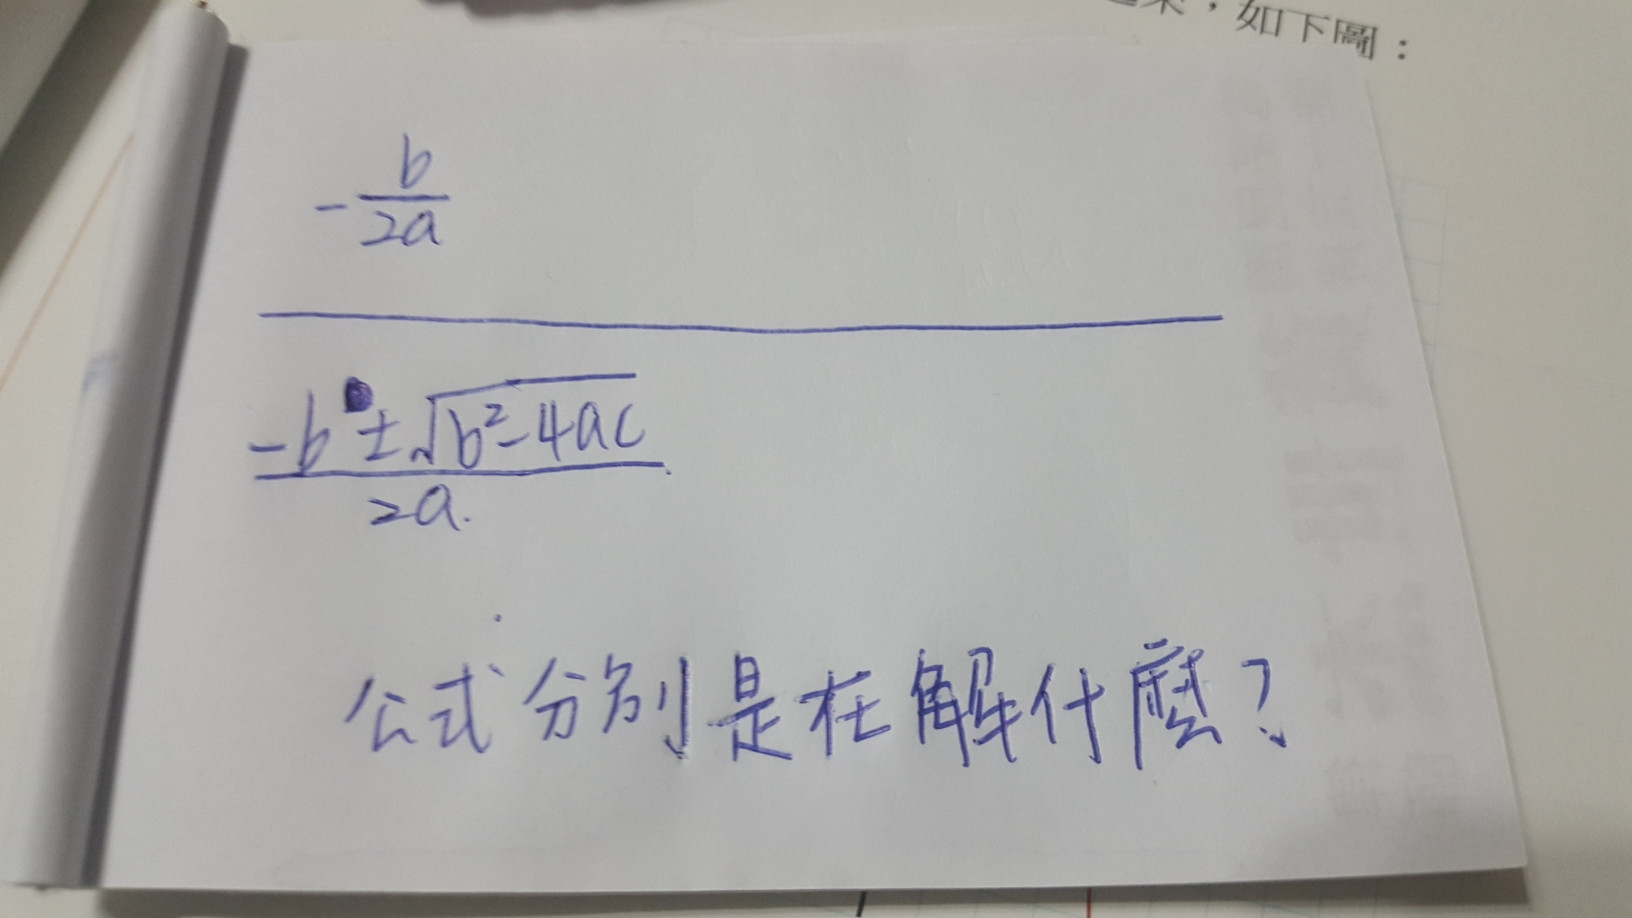 ，如下圖：
-b/2a
-b ± √b²-4ac
2a.
公式分別是在解什麼？